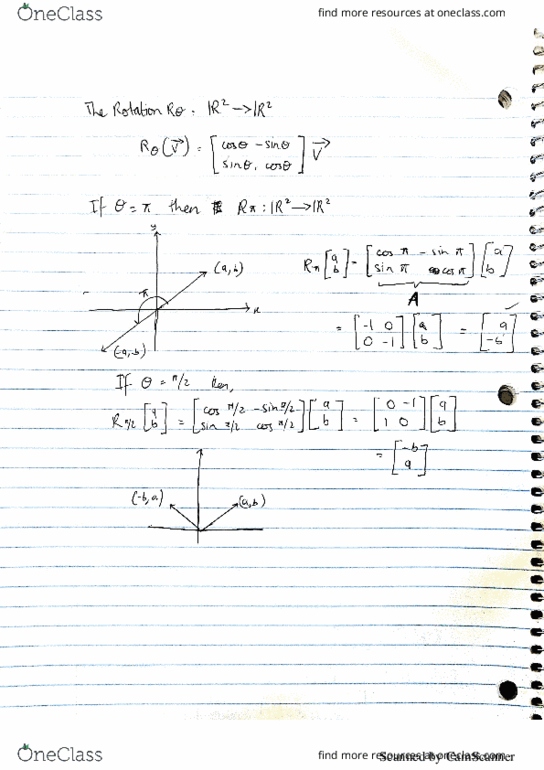 OneClass
find more resources at oneclass.com
The Rotation Rθ : ℝ² → ℝ²
Rθ(v⃗) = [cosθ -sinθ; sinθ, cosθ] v⃗
If θ = π then Rπ : ℝ² → ℝ²
y
(a,b)
π
x
(-a,-b)
Rπ [a; b] = [cos π - sin π; sin π cos π] [a; b]
A
= [-1 0; 0 -1] [a; b] = [a; -b]
If θ = π/2 then,
Rπ/2 [a; b] = [cos π/2 -sin π/2; sin π/2 cos π/2] [a; b] = [0 -1; 1 0] [a; b]
= [-b; a]
(-b,a)
(a,b)
OneClass
find more resources at oneclass.com
Scanned by CamScanner